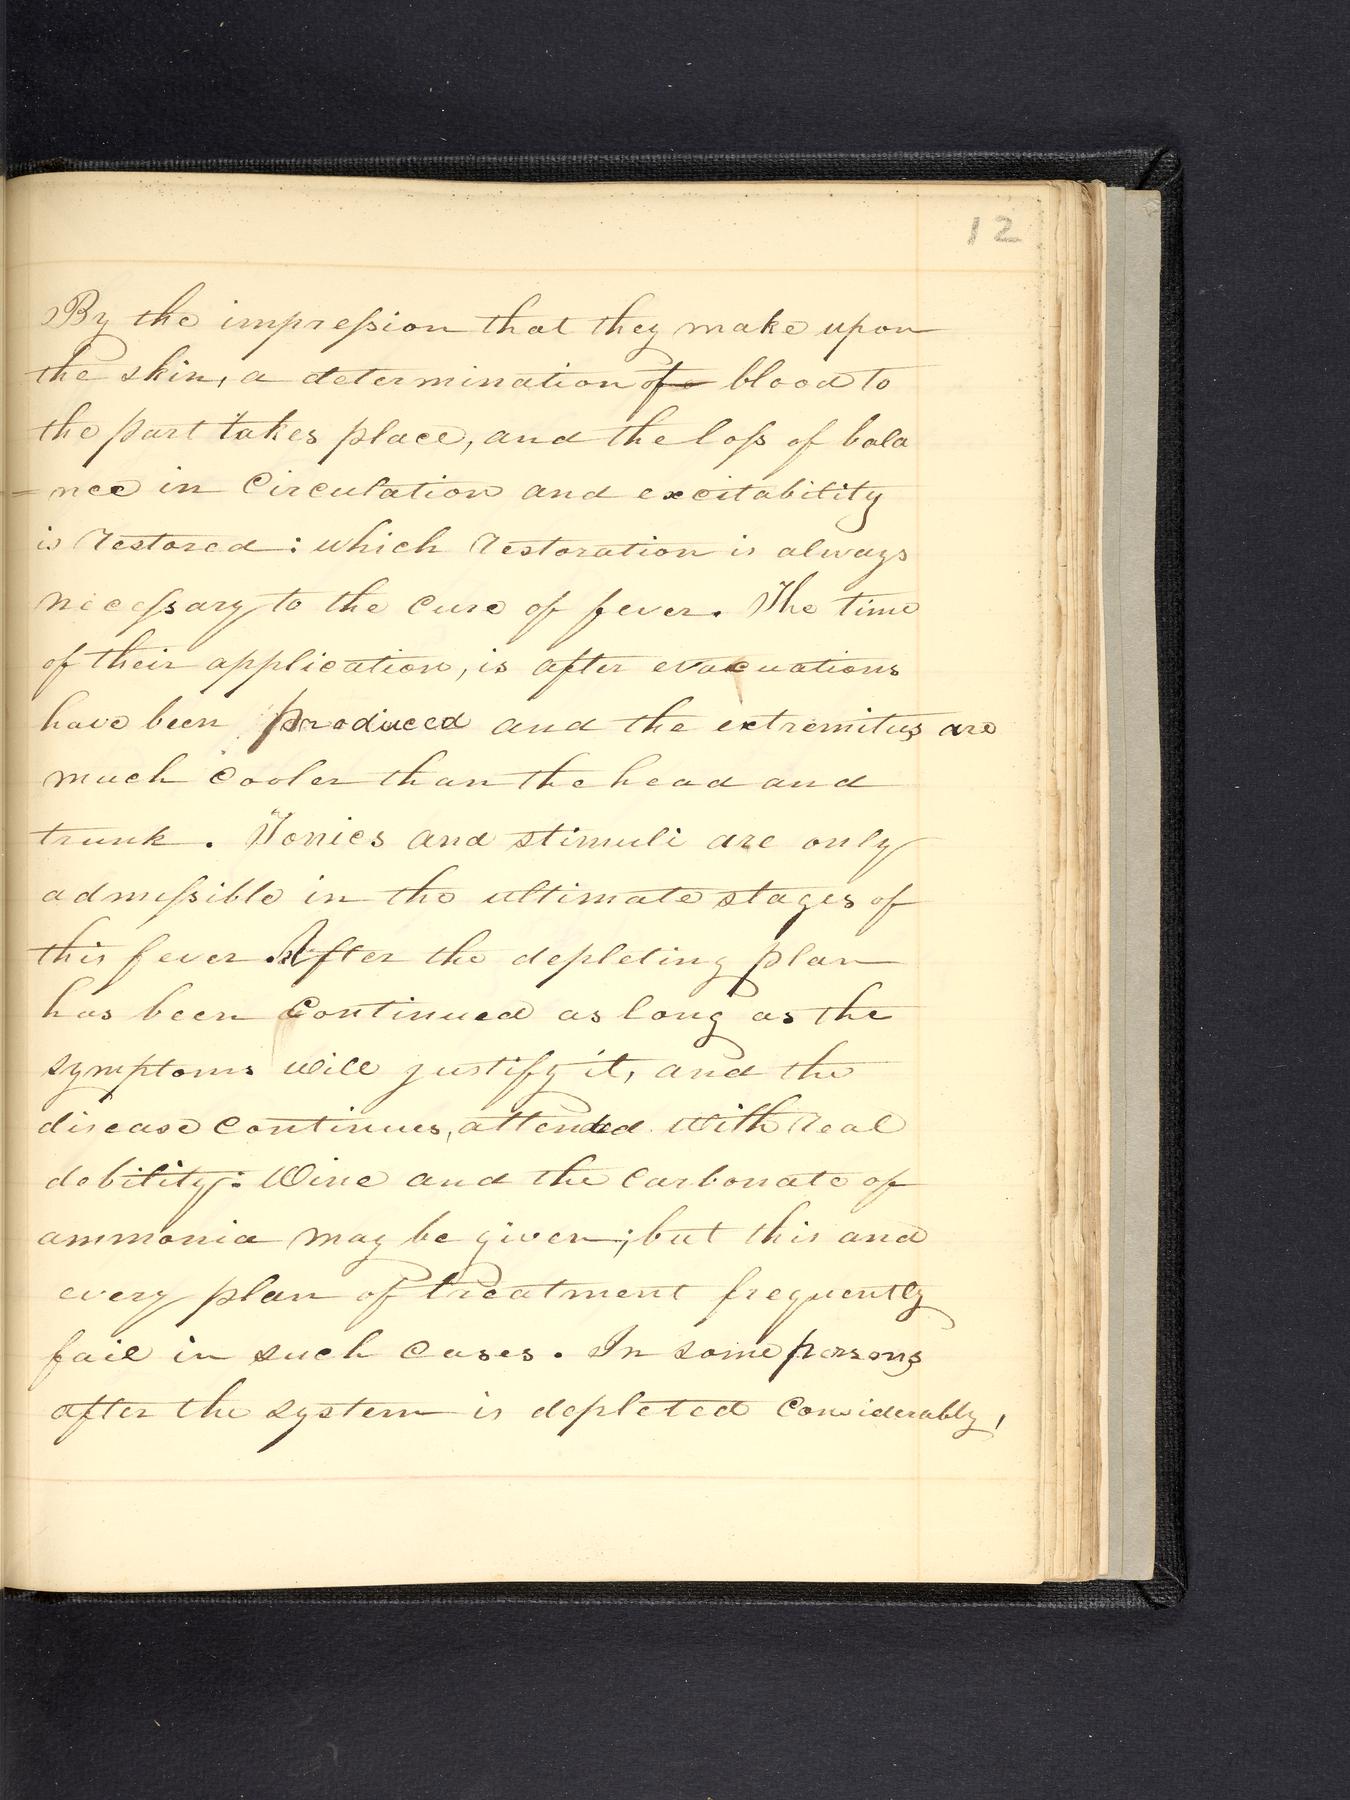 12
By the impreſsion that they make upon
the skin, a determination of blood to
the part takes place, and the loſs of bala
=nce in Circulation and excitability
is restored: which restoration is always
neceſsary to the cure of fever. The time
of their application, is after evacuations
have been produced and the extremitus are
much cooler than the head and
trunk. Tonics and stimuli are only
admiſsible in the ultimate stages of
this fever. After the depleting plan
has been Continued as long as the
symptoms will justify it, and the
disease continues, attended with real
debility: Wine and the carbonate of
ammonia may be given; but this and
every plan of treatment frequently
fail in such cases. In some persons
after the system is depleted Considerably,